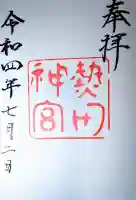 奉拝
熱田
神宮
令和四年七月二日